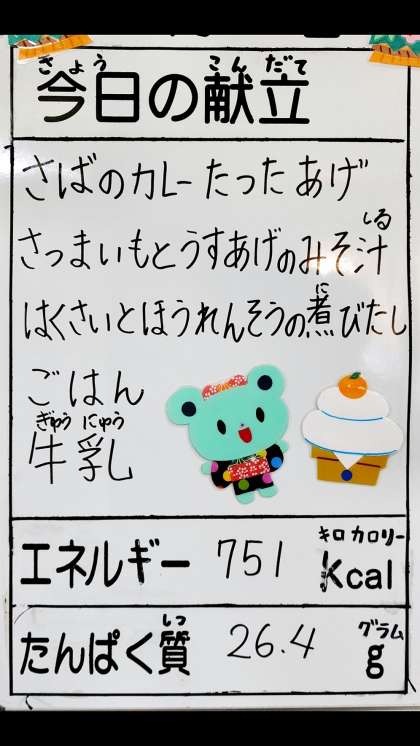 きょう こんだて
今日の献立
さばのカレーたったあげ
しる
さつまいもとうすあげのみそ汁
に
はくさいとほうれんそうの煮びたし
ごはん
ぎゅう にゅう
牛乳
キロ カロリー
エネルギー 751 Kcal
しつ グラム
たんぱく質 26.4 g